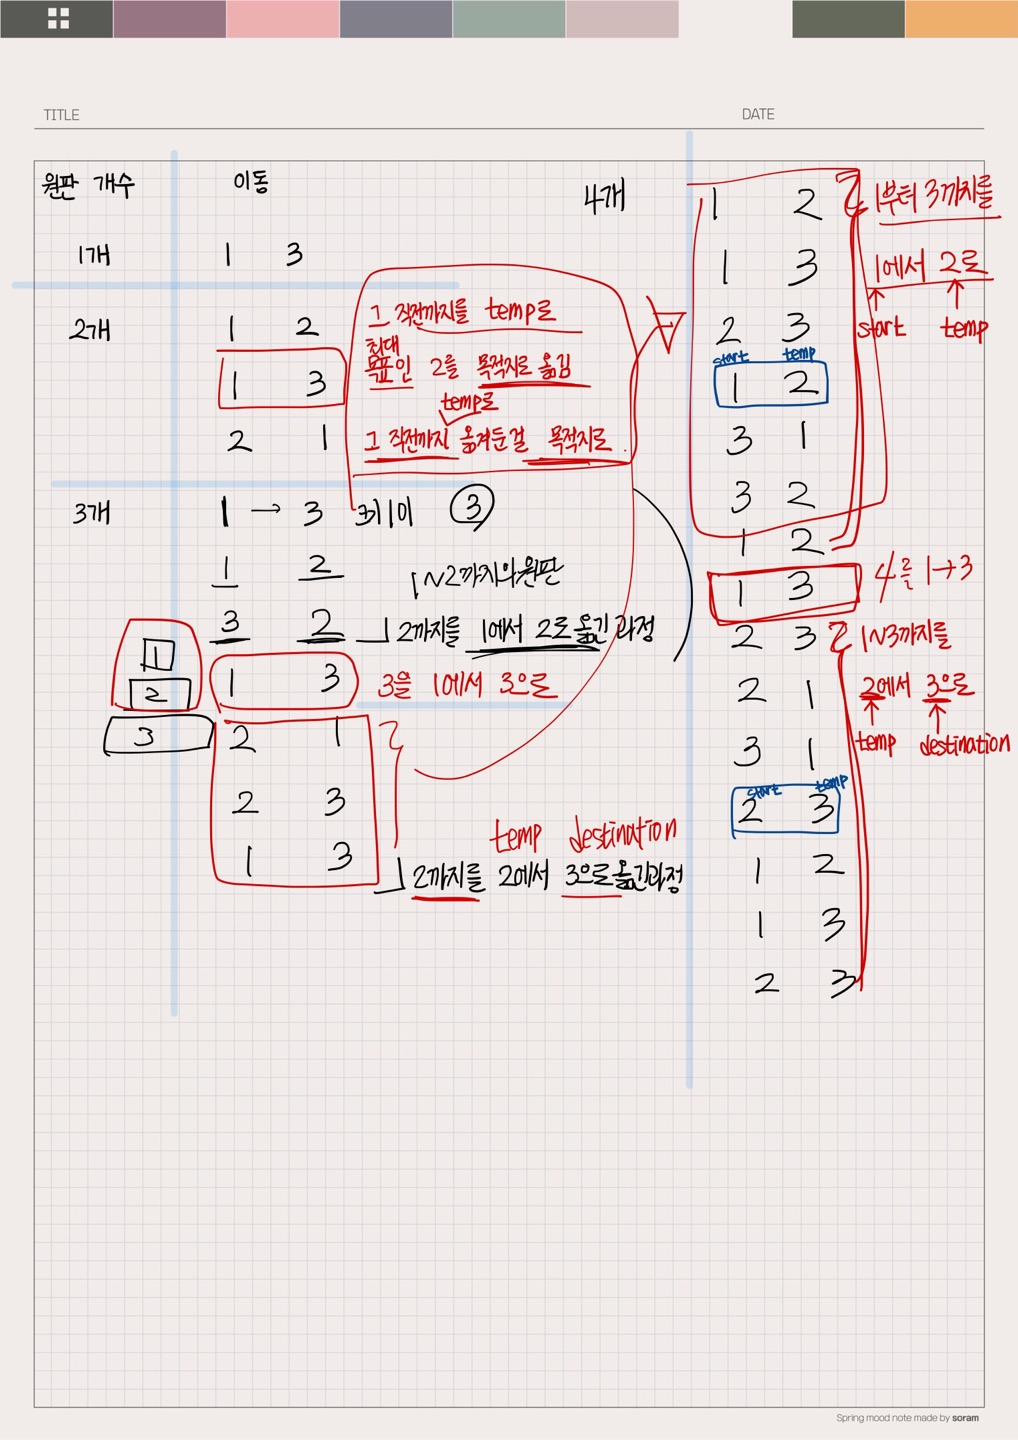 TITLE
DATE
원판 개수 이동
1개 1 3
2개 1 2
1 3
2 1
그 직전까지를 temp로
최대
목표인 2를 목적지로 옮김
temp로
그 직전까지 옮겨둔걸 목적지로.
3개 1 → 3 크기 ③
1 2 1~2까지의 원판
3 2 2까지를 1에서 2로 옮긴 과정
1
2
3
1 3 3을 1에서 3으로
2 1
2 3
1 3
temp destination
2까지를 2에서 3으로 옮긴과정
4개
1 2 1부터 3까지를
1 3 1에서 2로
start temp
2 3
start temp
1 2
3 1
3 2
1 2
1 3 4를 1→3
2 3 1~3까지를
2 1 2에서 3으로
temp destination
3 1
start temp
2 3
1 2
1 3
2 3
Spring mood note made by soram